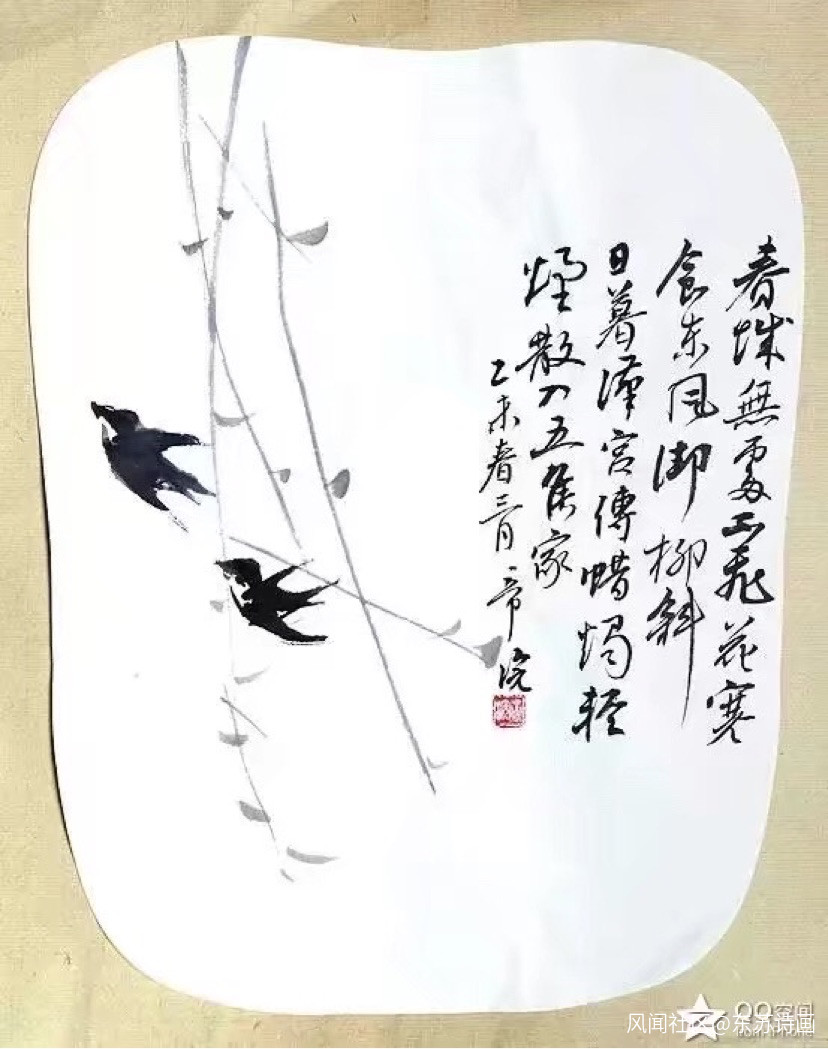 春城無處不飛花寒
食东风御柳斜
日暮漢宫傳蜡燭轻
煙散入五侯家
乙未春三月
QQ空间
风闻社区@东苏詩画